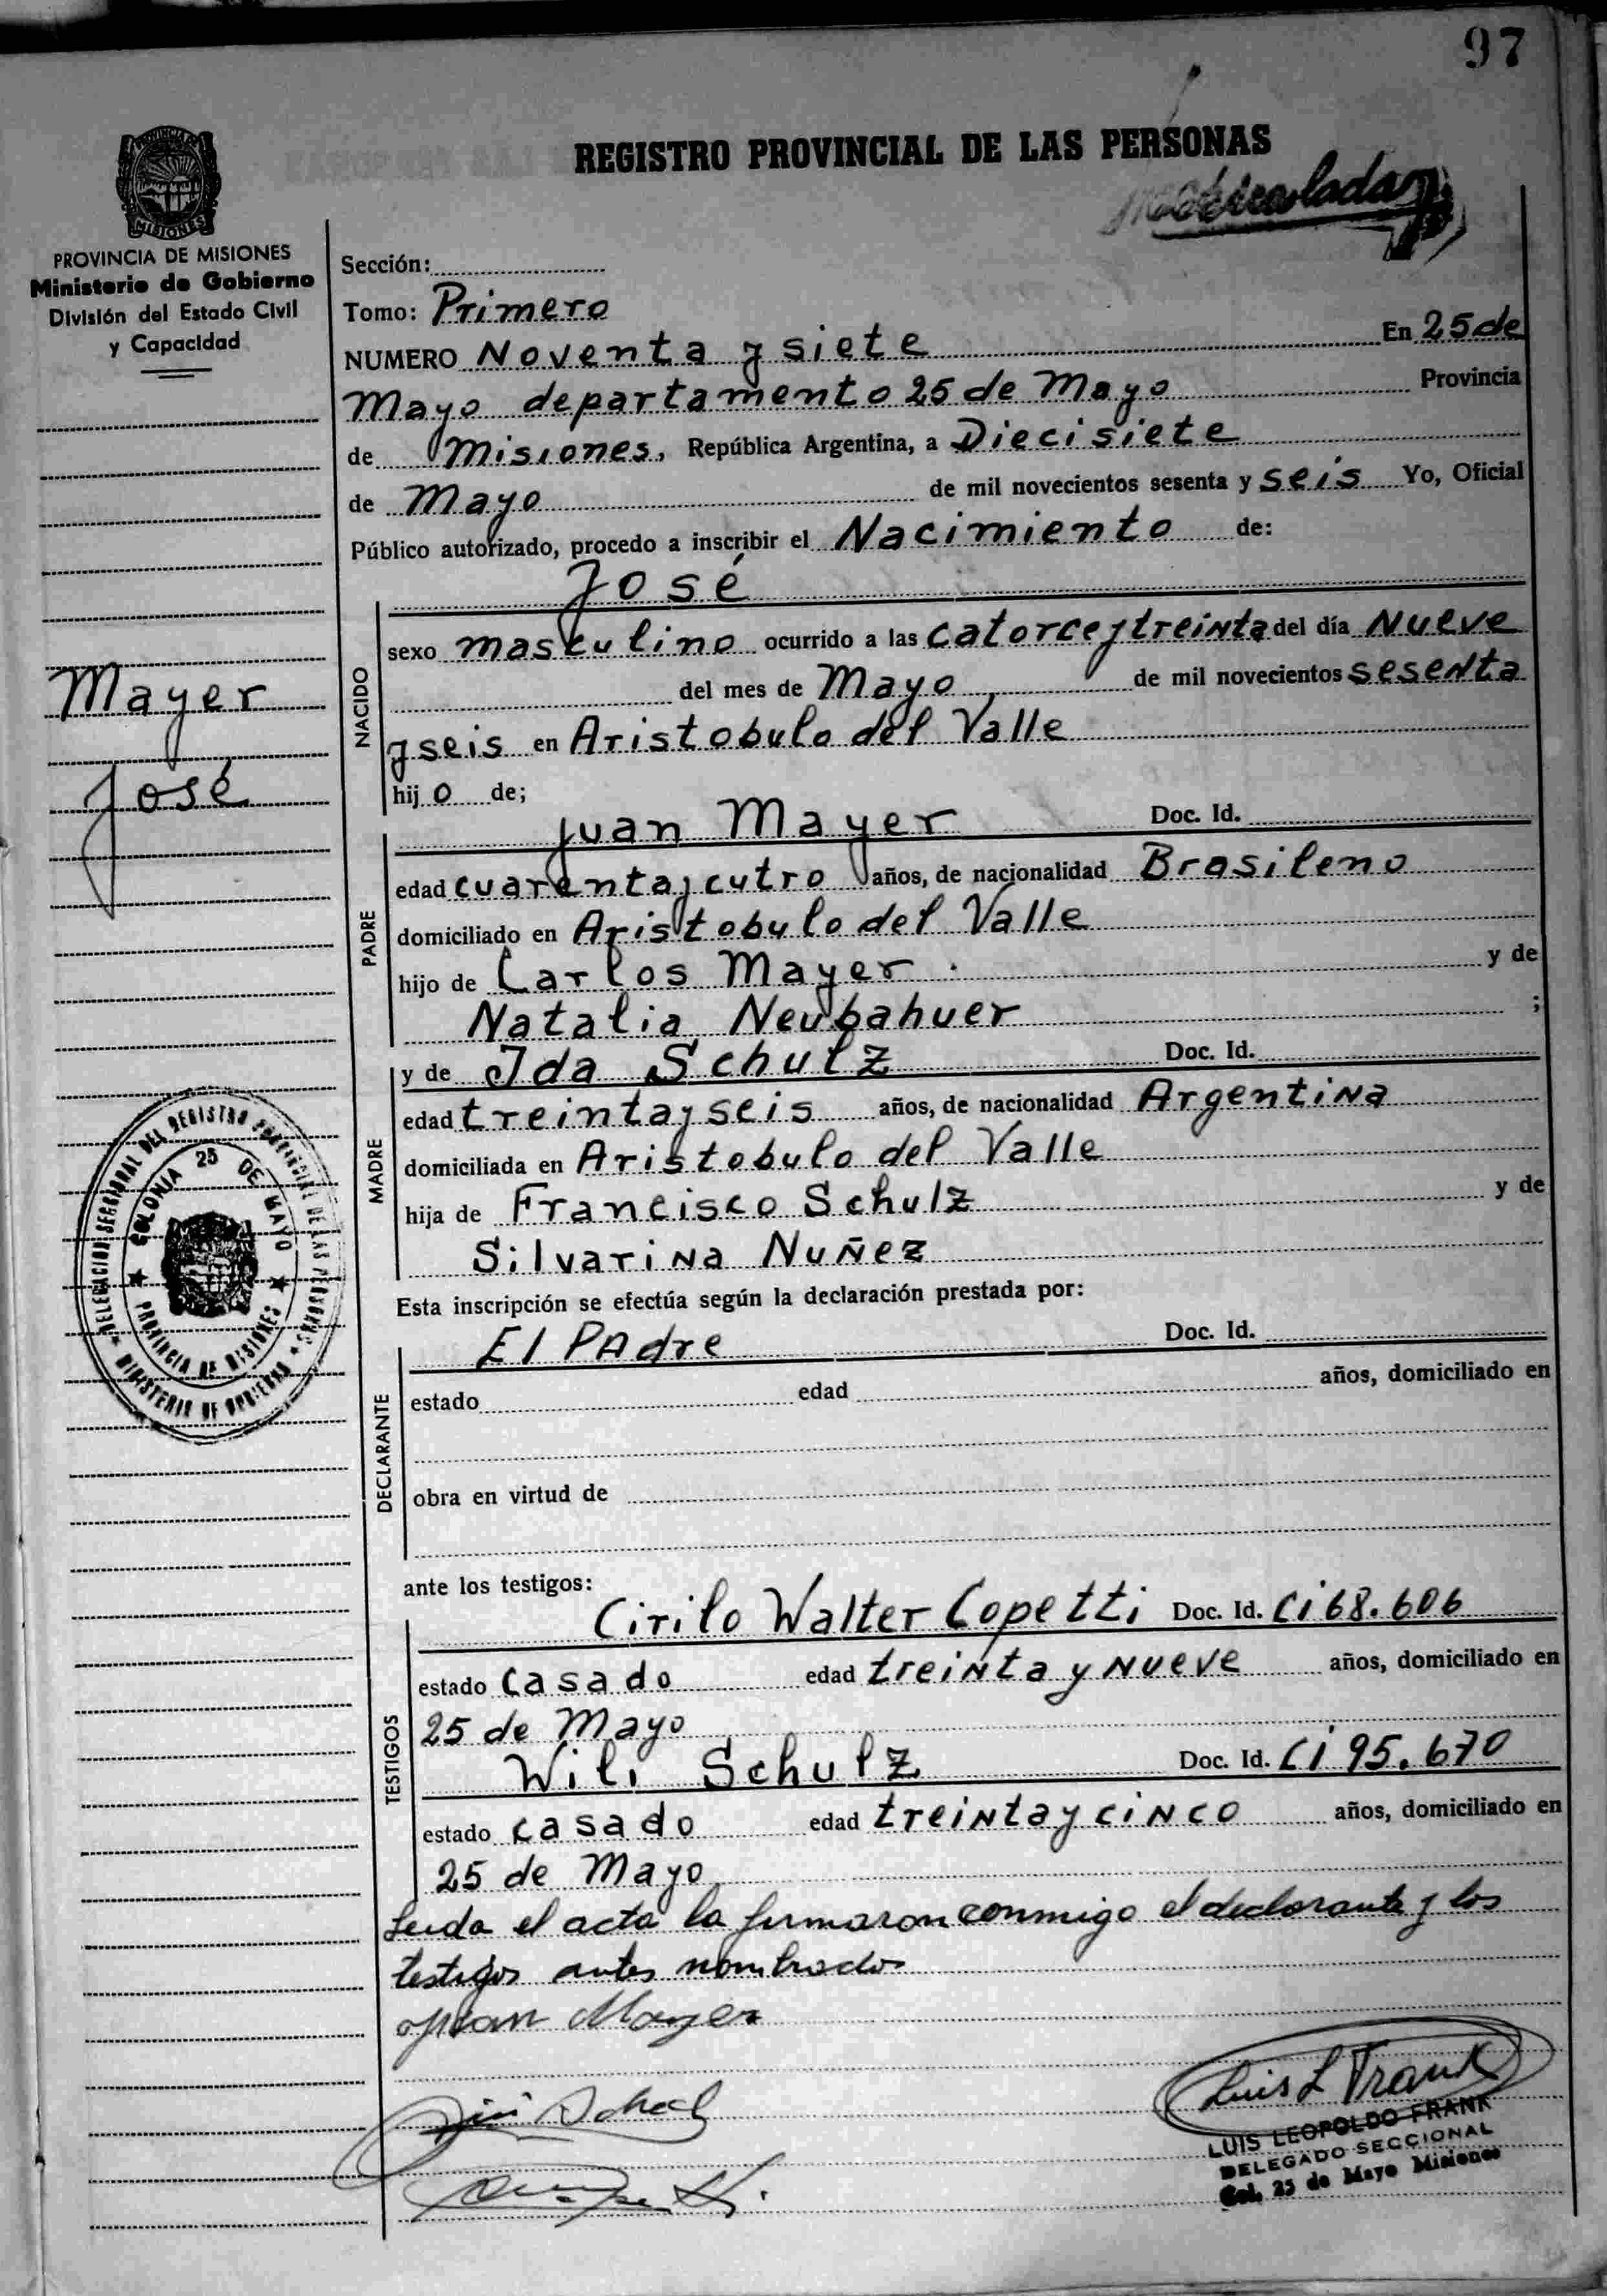 97
REGISTRO PROVINCIAL DE LAS PERSONAS
PROVINCIA DE MISIONES
MISIONES
PROVINCIA DE MISIONES
Ministerio de Gobierno
División del Estado Civil
y Capacidad
Sección:
Tomo: Primero
NUMERO Noventa y siete En 25 de
Mayo departamento 25 de Mayo Provincia
de Misiones, República Argentina, a Diecisiete
de Mayo de mil novecientos sesenta y seis Yo, Oficial
Público autorizado, procedo a inscribir el Nacimiento de:
NACIDO
José
sexo masculino ocurrido a las catorce y treinta del día Nueve
del mes de Mayo de mil novecientos sesenta
y seis en Aristobulo del Valle
hijo de;
Mayer
José
PADRE
Juan Mayer Doc. Id.
edad cuarenta y cutro años, de nacionalidad Brasileno
domiciliado en Aristobulo del Valle
hijo de Carlos Mayer y de
Natalia Neubahuer ;
MADRE
y de Ida Schulz Doc. Id.
edad treinta y seis años, de nacionalidad Argentina
domiciliada en Aristobulo del Valle
hija de Francisco Schulz y de
Silvarina Nuñez
DELEGACION SECCIONAL DEL REGISTRO PROVINCIAL DE LAS PERSONAS
MINISTERIO DE GOBIERNO
COLONIA 25 DE MAYO
PROVINCIA DE MISIONES
Esta inscripción se efectúa según la declaración prestada por:
DECLARANTE
El Padre Doc. Id.
estado edad años, domiciliado en
obra en virtud de
ante los testigos:
TESTIGOS
Cirilo Walter Copetti Doc. Id. Ci 68.606
estado Casado edad treinta y nueve años, domiciliado en
25 de Mayo
Wili Schulz Doc. Id. Ci 95.670
estado casado edad treinta y cinco años, domiciliado en
25 de Mayo
Leida el acta la firmaron conmigo el declarante y los
testigos antes nombrados
Juan Mayer
Luis L Frank
LUIS LEOPOLDO FRANK
DELEGADO SECCIONAL
Col. 25 de Mayo Misiones